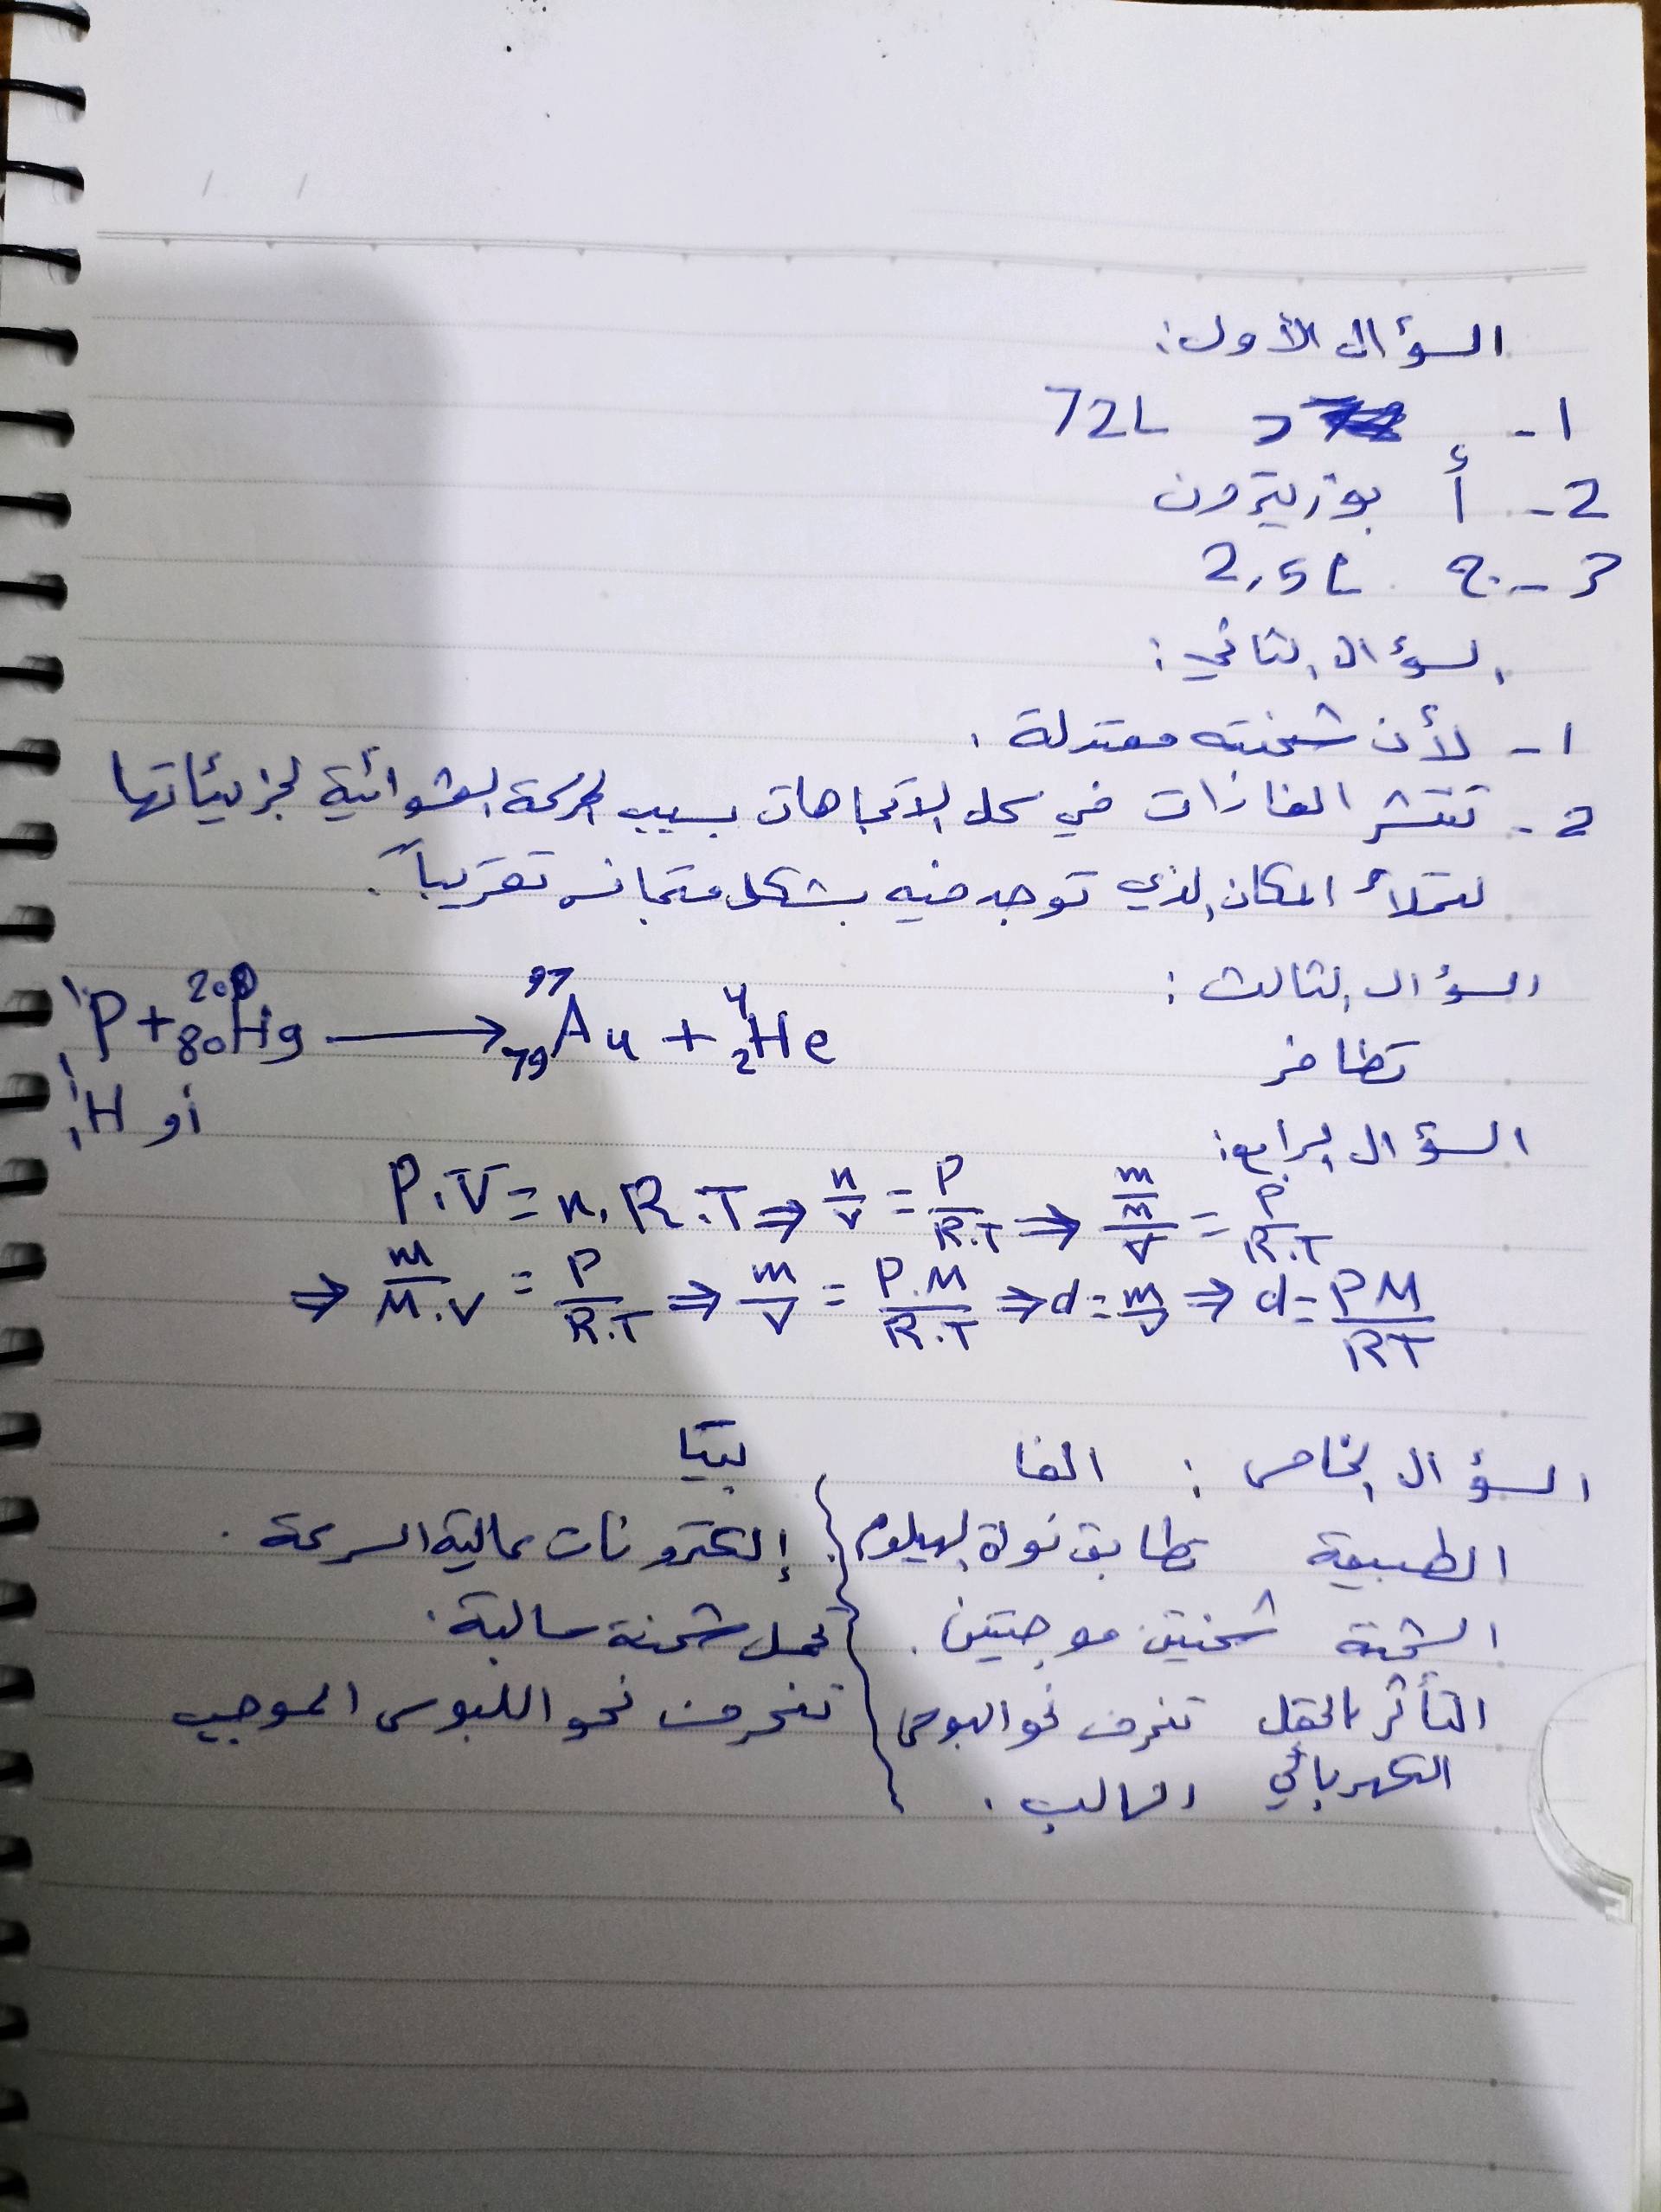 السؤال الأول:
1- د 72L
2- أ بوزيترون
3- ج 2,5L
السؤال الثاني:
1- لأن شحنته معتدلة.
2- تنتشر الغازات في كل الاتجاهات بسبب الحركة العشوائية لجزيئاتها
لتملأ المكان الذي توجد فيه بشكل متجانس تقريباً.
السؤال الثالث:
¹₁P + ²⁰⁰₈₀Hg ⟶ ¹⁹⁷₇₉Au + ⁴₂He
تظافر
أو ¹₁H
السؤال الرابع:
P.V = n.R.T ⇒ n/V = P/R.T ⇒ (m/M)/V = P/R.T
⇒ m/M.V = P/R.T ⇒ m/V = P.M/R.T ⇒ d = m/V ⇒ d = PM/RT
السؤال الخامس: الفا بيتا
الطبيعة تطابق نواة الهيليوم إلكترونات عالية السرعة.
الشحنة شحنتين موجبتين. تحمل شحنة سالبة.
التأثر بالحقل الكهربائي تنحرف نحو اللبوس السالب. تنحرف نحو اللبوس الموجب